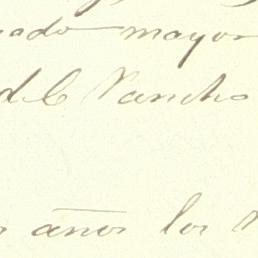 sado mayor
del Rancho
años los